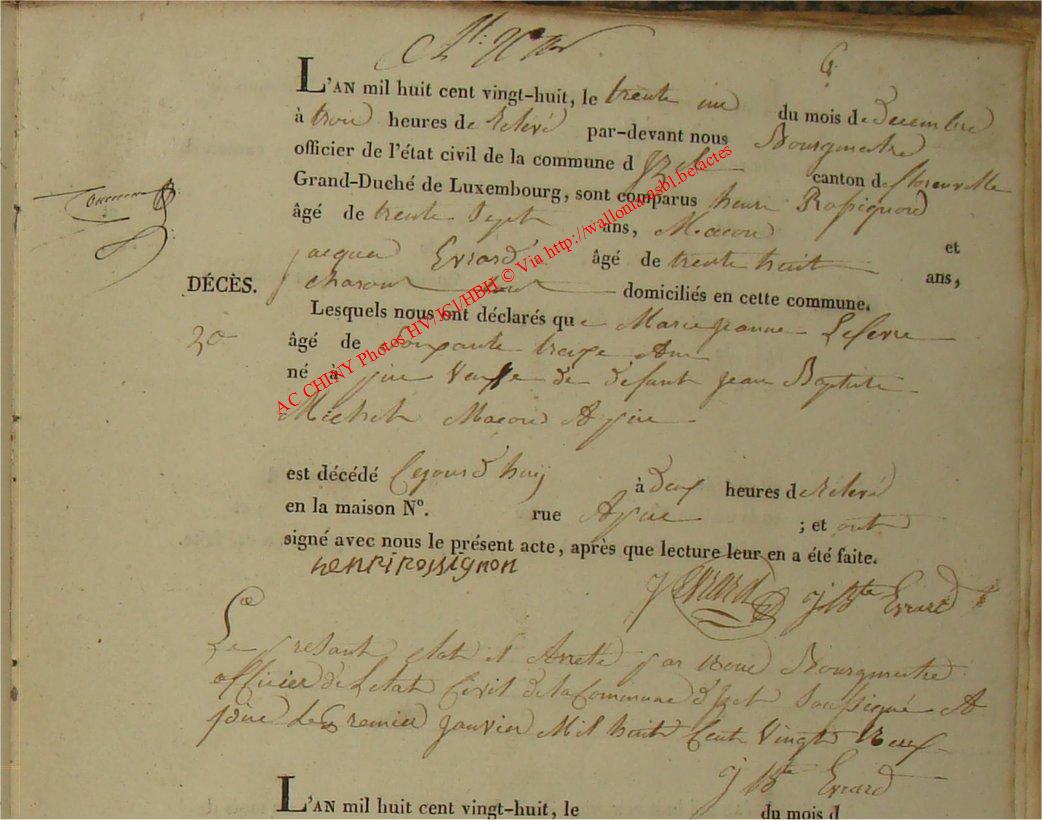 L'AN mil huit cent vingt-huit, le trente un du mois de Decembre
à trois heures de Relevé par-devant nous Bourgmestre
officier de l'état civil de la commune d Izel canton de florenville
Grand-Duché de Luxembourg, sont comparus henri Rossignon
âgé de trente Sept ans, Macon et
jacque Evrard âgé de trente huit ans,
domiciliés en cette commune.
DÉCÈS.
Lesquels nous ont déclarés que Marie jeanne Lefevre
âgé de Soixante treize Ans
né à pin Veuve de défunt jean Baptiste
Michel Macon A pin
est décédé Cejourd'huy à deux heures de Relevé
en la maison Nº. rue A pin ; et ont
signé avec nous le présent acte, après que lecture leur en a été faite.
henri rossignon
J Evrard j Bte Evrard
Le present etat et Arretté par nous Bourgmestre
officier de Letat Civil de la Commune d'Izel Soussigné A
pin Le premier janvier Mil huit Cent Vingt Neuf
j Bte Evrard
L'AN mil huit cent vingt-huit, le du mois d
AC CHINY Photos HV/ICJ/HBH © Via http://wallonia.asbl.be/actes